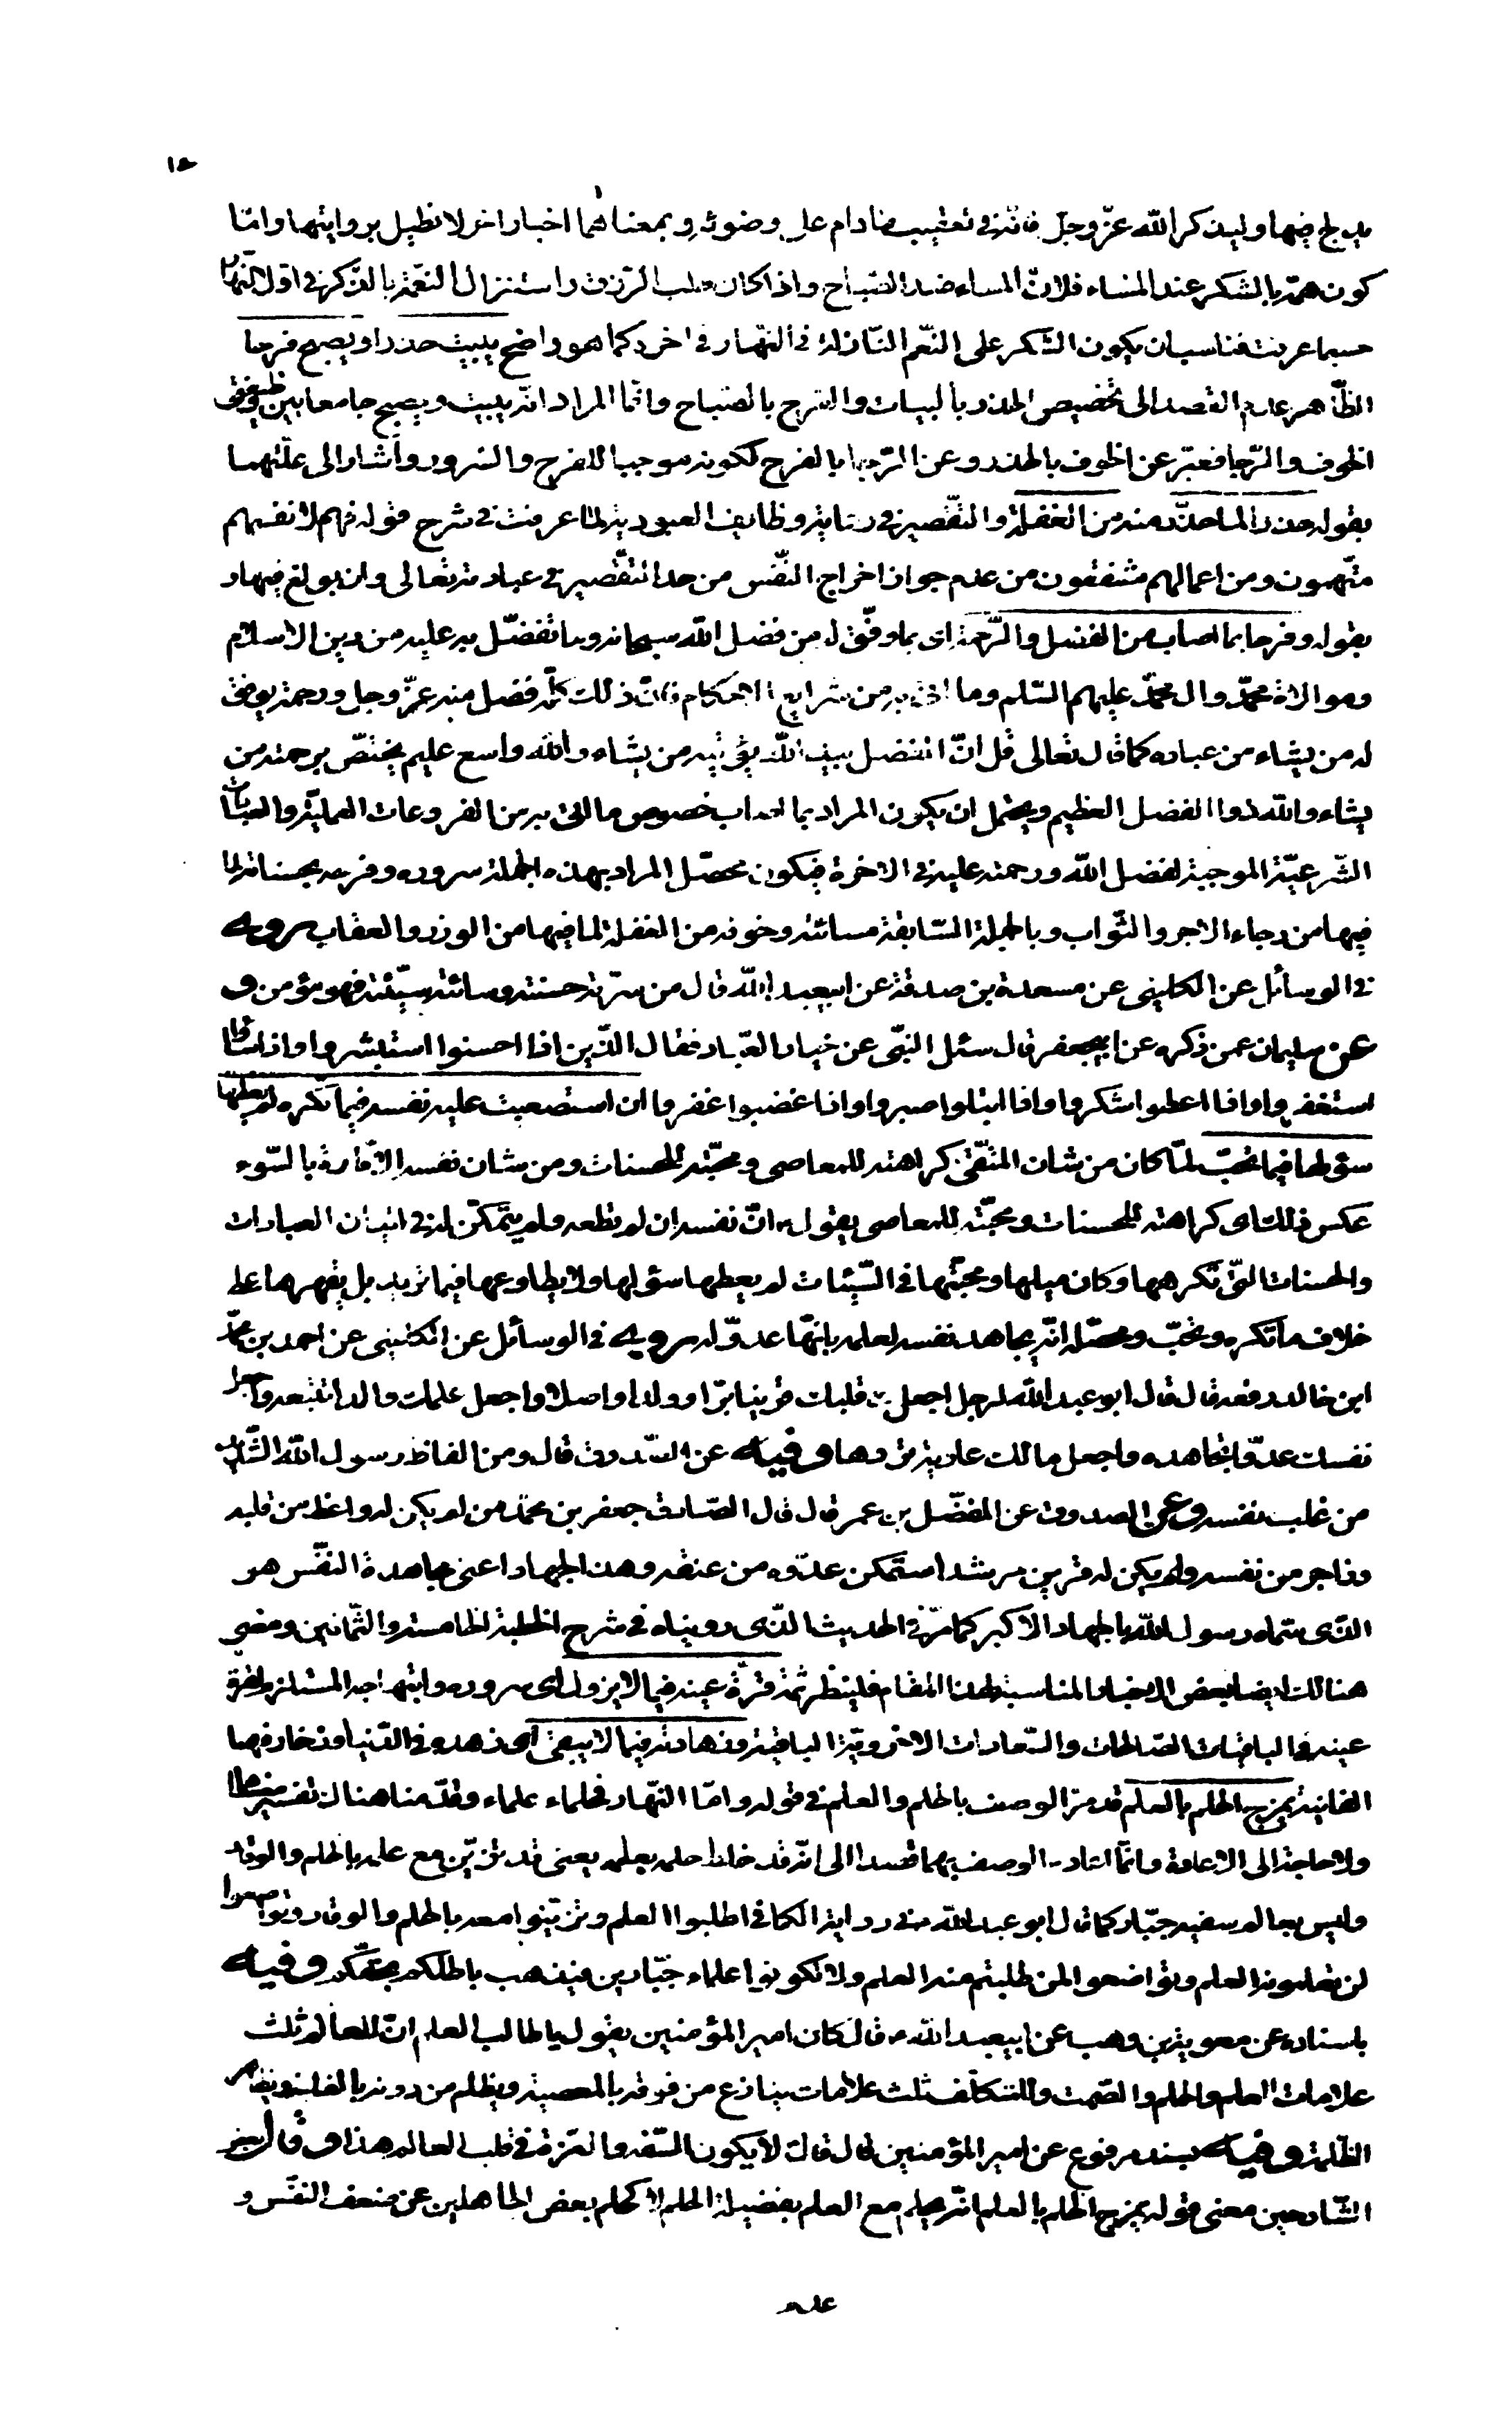 ١٥
يدلج فيها وليذكر الله عزّ وجلّ فانّه في تعقيب مادام على وضوئه وبمعناهما اخبار اخر لا نطيل بروايتها وامّا
كون همّه بالشكر عند المساء فلانّ المساء ضد الصّباح واذا كان طلب الرّزق واستنزال النعمة بالذّكر في اوّل النّهار
حسبما عرفت فناسب ان يكون الشكر على النّعم النّازلة في النّهار في اخره كما هو واضح يبيت حذرا ويصبح فرحا
الظّاهر عدم القصد الى تخصيص الحذر بالبيات والفرح بالصّباح وانّما المراد انّه يبيت ويصبح جامعا بين وصفي
الخوف والرّجا فعبّر عن الخوف بالحذر وعن الرّجا بالفرح لكونه موجبا للفرح والسّرور وأشار الى علّتهما
بقوله حذرا لما حذّر منه من الغفلة والتّقصير في رعاية وظايف العبوديّة لما عرفت في شرح قوله فهم لانفسهم
متّهمون ومن اعمالهم مشفقون من عدم جواز اخراج النّفس من حدّ التّقصير في عبادته تعالى وان بولغ فيها و
بقوله وفرحا بما اصاب من الفضل والرّحمة اى بما وفّق له من فضل الله سبحانه وبما تفضّل به عليه من دين الاسلام
وموالاة محمّد وال محمّد عليهم السّلم وما من شرايع الاحكام فانّ ذلك كلّه فضل منه عزّ وجل ورحمة يوفّق
له من يشاء من عباده كما قال تعالى قل انّ الفضل بيد الله يؤتيه من يشاء والله واسع عليم يختصّ برحمته من
يشاء والله ذوا الفضل العظيم ويحتمل ان يكون المراد بما اصاب خصوص ما اتى به من الفروعات العمليّة والعبادات
الشّرعيّة الموجبة لفضل الله ورحمته عليه في الاخرة فيكون محصّل المراد بهذه الجملة سروره وفرحه بحسناته لما
فيها من رجاء الاجر والثّواب وبالجملة السّابقة مسائته وخوفه من الغفلة لما فيها من الوزر والعقاب روى
في الوسائل عن الكليني عن مسعدة بن صدقة عن ابيعبد الله قال من سرّته حسنته وسائته سيّئته فهو مؤمن و
عن سليمان عمن ذكره عن ابيجعفر قال سئل النبّي عن خيار العبّاد فقال الذّين اذا احسنوا استبشروا واذا اساؤا
استغفروا واذا اعطوا شكروا واذا ابتلوا صبروا واذا غضبوا غفروا ان استصعبت عليه نفسه فيما تكره لم يعطها
سؤلها فيما تحبّ لمّا كان من شان المتّقي كراهته للمعاصي ومحبّته للحسنات ومن شان نفسه الأمّارة بالسّوء
عكس ذلك اى كراهته للحسنات ومحبّته للمعاصي يقول انّ نفسه ان لم تطعه ولم يتمكّن له في اتيان العبادات
والحسنات التّي تكرهها وكان ميلها ومحبّتها في السّيّئات لم يعطها سؤلها ولا يطاوعها فيما تريد بل يقهرها على
خلاف ما تكره وتحبّ ومحصّله انّه يجاهد نفسه لعلمه بانّها عدوّ له روى في الوسائل عن الكليني عن احمد بن محمّد
ابن خالد رفعه قال قال ابو عبد الله لرجل اجعل قلبك قرينا برّا وولدا واصلا واجعل علمك والدا تتّبعه واجعل
نفسك عدوّا تجاهده واجعل مالك عارية تردها وفيه عن الصّدوق قال ومن الفاظ رسول الله الشّديد
من غلب نفسه وعن الصدوق عن المفضّل بن عمر قال قال الصّادق جعفر بن محمّد من لم يكن له واعظ من قلبه
وزاجر من نفسه ولم يكن له قرين مرشد استمكن عدّوه من عنقه وهذا الجهاد اعنى مجاهدة النّفس هو
الذّى سمّاه رسول الله بالجهاد الاكبر كما مرّ في الحديث الذّى رويناه في شرح الخطبة الخامسة والثّمانين ومضى
هنالك ايضا بعض الاخبار المناسبة لهذا المقام فلينظر ثمّة قرّة عينه فيما لا يزول اى سروره وابتهاجه المستلزم لقرّة
عينه في الباقيات الصّالحات والسّعادات الاخرويّة الباقية وزهادته فيما لا يبقى اى زهده في الدّنيا وزخارفها
الفانية يمزج الحلم بالعلم قد مرّ الوصف بالحلم والعلم في قوله وامّا النّهار فحلماء علماء وقدّمنا هنالك تفسيرهما
ولا حاجة الى الاعادة وانّما اعاد الوصف بهما قصدا الى انّه قد خلط حلمه بعلمه يعنى قد تزيّن مع علمه بالحلم والوقار
وليس بعالم سفيه جبّار كما قال ابو عبد الله في رواية الكافي اطلبوا العلم وتزيّنوا معه بالحلم والوقار وتواضعوا
لمن تعلمونه العلم وتواضعوا لمن طلبتم منه العلم ولا تكونوا علماء جبّارين فيذهب باطلكم بحقّكم وفيه
باسناده عن معوية بن وهب عن ابيعبد الله قال كان امير المؤمنين يقول يا طالب العلم انّ للعالم ثلث
علامات العلم والحلم والصّمت وللمتكلّف ثلث علامات ينازع من فوقه بالمعصية ويظلم من دونه بالغلبة ويظاهر
الظّلمة وفيه بسند مرفوع عن امير المؤمنين قال قال لا يكون السّفه والعزّة في قلب العالم هذا وقال بعض
الشّارحين معنى قوله يمزج الحلم بالعلم انّه يحلم مع العلم بفضيلة الحلم لا كحلم بعض الجاهلين عن ضعف النفّس و